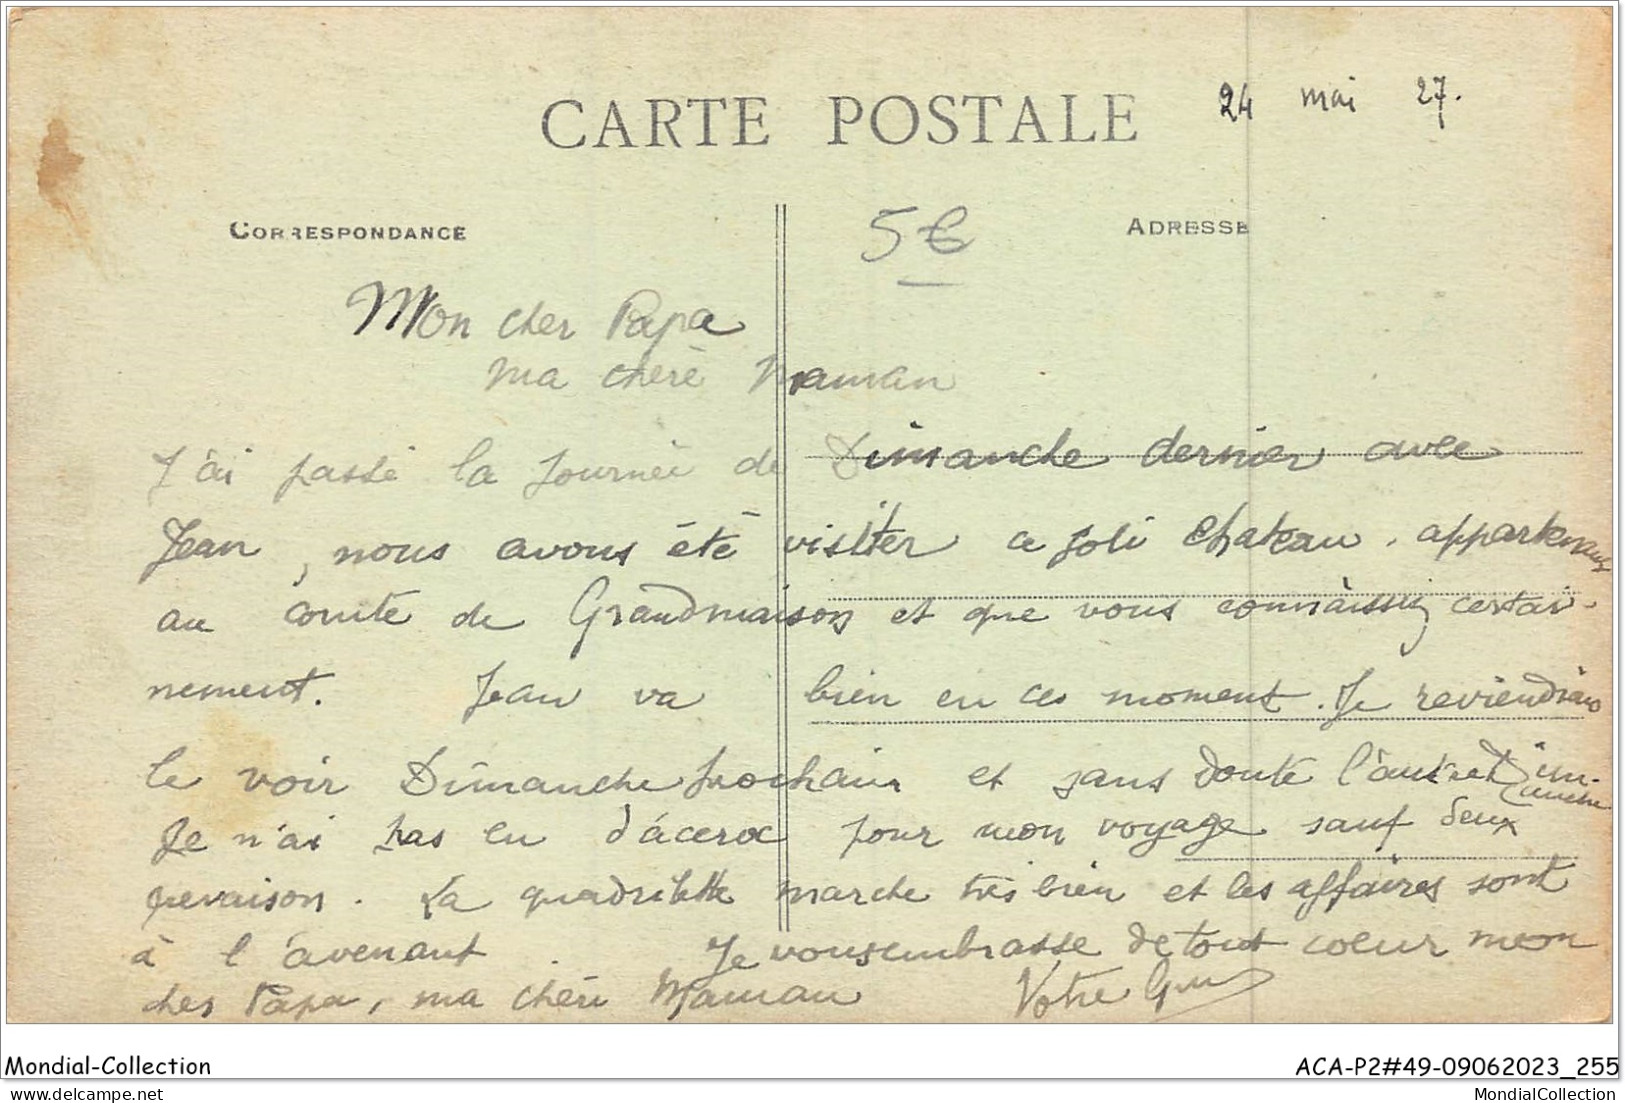 CARTE POSTALE
24 mai 27.
CORRESPONDANCE
5€
ADRESSE
Mon cher Papa
Ma chère Maman
J'ai passé la journée de Dimanche dernier avec
Jean, nous avons été visiter ce joli chateau. appartenant
au comte de Grandmaison et que vous connaissiez certai-
nement. Jean va bien en ce moment. Je reviendrais
le voir Dimanche prochain et sans doute l'autre Dim-
anche
Je n'ai pas eu d'accroc pour mon voyage sauf deux
crevaison. La quadrilette marche très bien et les affaires sont
à l'avenant. Je vous embrasse de tout coeur mon
cher Papa, ma chère Maman Votre
Mondial-Collection
ACA-P2#49-09062023_255
MondialCollection
MondialCollection